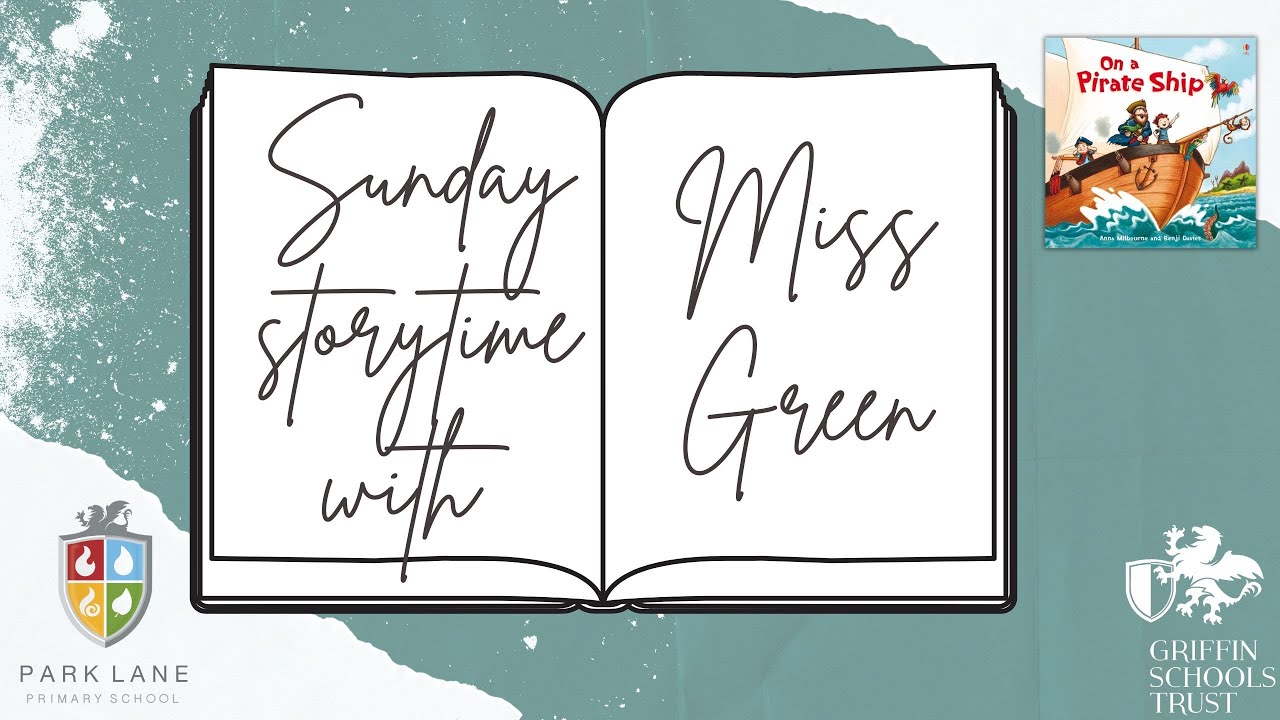 Sunday
storytime
with
Miss
Green
On a
Pirate Ship
Anna Milbourne and Benji Davies
PARK LANE
PRIMARY SCHOOL
GRIFFIN
SCHOOLS
TRUST